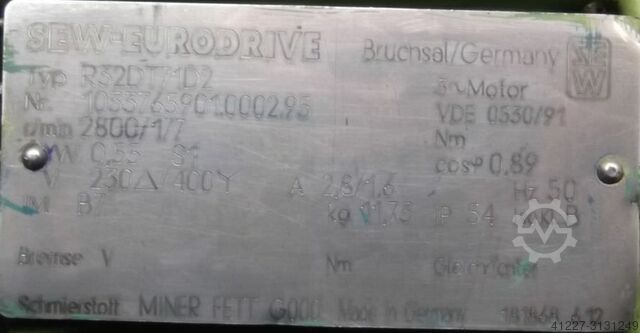 SEW-EURODRIVE Bruchsal/Germany SEW
Typ R32DT71D2 3~Motor
Nr. 1033765901.0002.95 VDE 0530/91
r/min 2800/177 Nm
kW 0.55 S1 cosφ 0.89
V 230Δ/400Y A 2,8/1,6 Hz 50
IM B7 kg IP 54 Kl B
Bremse V Nm Gleichrichter
Schmierstoff MINER FETT G000 Made in Germany 181868 6.12
41227-3131249